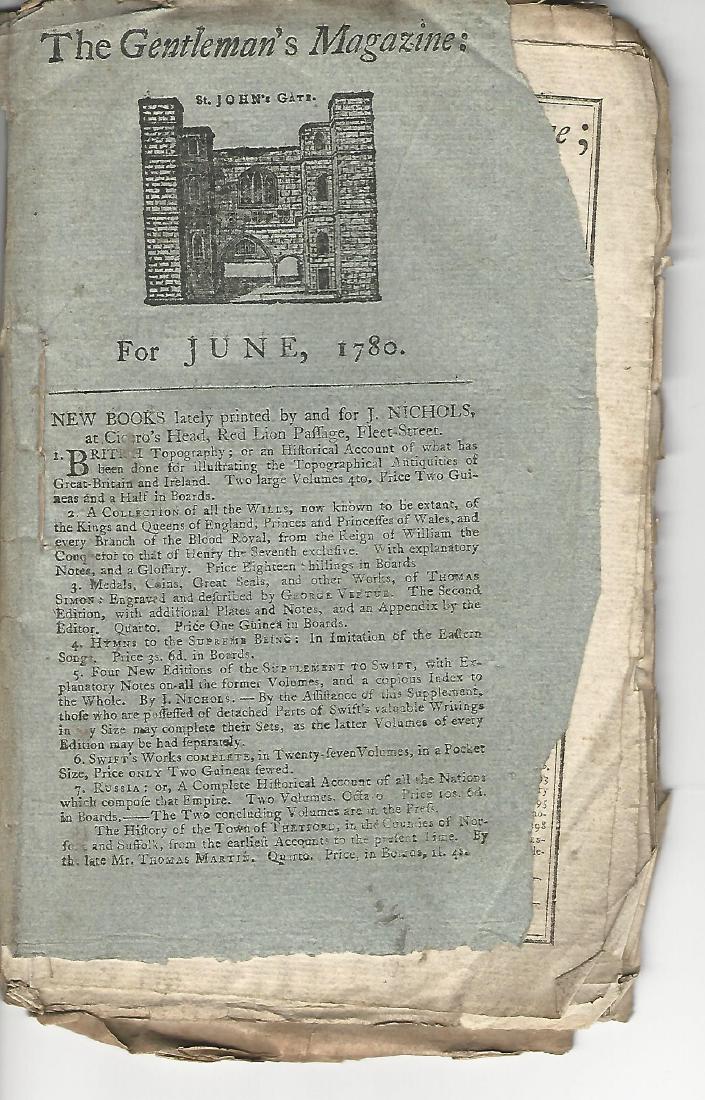 The Gentleman's Magazine:
St. JOHN's GATE.
For JUNE, 1780.
NEW BOOKS lately printed by and for J. NICHOLS,
at Cicero's Head, Red Lion Paſſage, Fleet-Street.
1. BRITISH Topography; or an Historical Account of what has
been done for illuſtrating the Topographical Antiquities of
Great-Britain and Ireland. Two large Volumes 4to, Price Two Gui-
neas and a Half in Boards.
2. A COLLECTION of all the WILLS, now known to be extant, of
the Kings and Queens of England, Princes and Princeſſes of Wales, and
every Branch of the Blood Royal, from the Reign of William the
Conqueror to that of Henry the Seventh excluſive. With explanatory
Notes, and a Gloſſary. Price Eighteen Shillings in Boards
3. Medals, Coins, Great Seals, and other Works, of THOMAS
SIMON: Engraved and deſcribed by GEORGE VERTUE. The Second
Edition, with additional Plates and Notes, and an Appendix by the
Editor. Quarto. Price One Guinea in Boards.
4. HYMNS to the SUPREME BEING: In Imitation of the Eaſtern
Songs. Price 3s. 6d. in Boards.
5. Four New Editions of the SUPPLEMENT TO SWIFT, with Ex-
planatory Notes on all the former Volumes, and a copious Index to
the Whole. By J. NICHOLS. — By the Aſſiſtance of this Supplement,
thoſe who are poſſeſſed of detached Parts of Swift's valuable Writings
in any Size may complete their Sets, as the latter Volumes of every
Edition may be had ſeparately.
6. SWIFT's Works COMPLETE, in Twenty-ſeven Volumes, in a Pocket
Size, Price ONLY Two Guineas ſewed.
7. RUSSIA: or, A Complete Hiſtorical Account of all the Nations
which compoſe that Empire. Two Volumes, Octavo. Price 10s. 6d.
in Boards.——The Two concluding Volumes are in the Preſs.
The Hiſtory of the Town of THETFORD, in the Counties of Nor-
folk and Suffolk, from the earlieſt Accounts to the preſent Time. By
the late Mr. THOMAS MARTIN. Quarto. Price, in Boards, 1l. 4s.